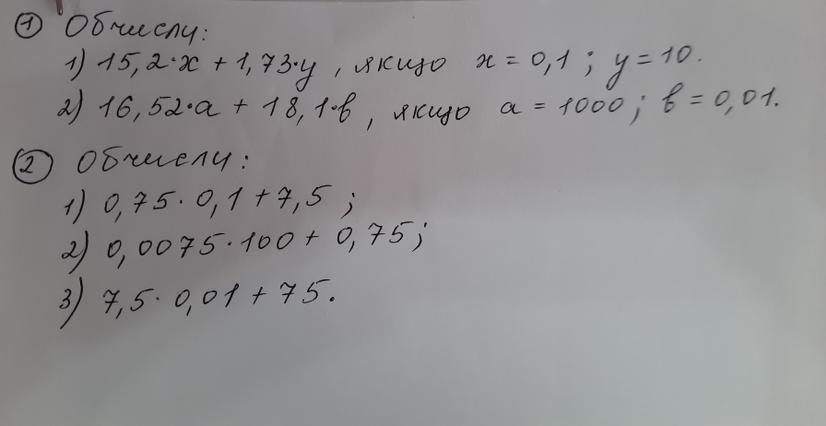 ① Обчисли:
1) 15,2·x + 1,73·y, якщо x = 0,1; y = 10.
2) 16,52·a + 18,1·b, якщо a = 1000; b = 0,01.
② Обчисли:
1) 0,75·0,1 + 7,5;
2) 0,0075·100 + 0,75;
3) 7,5·0,01 + 75.